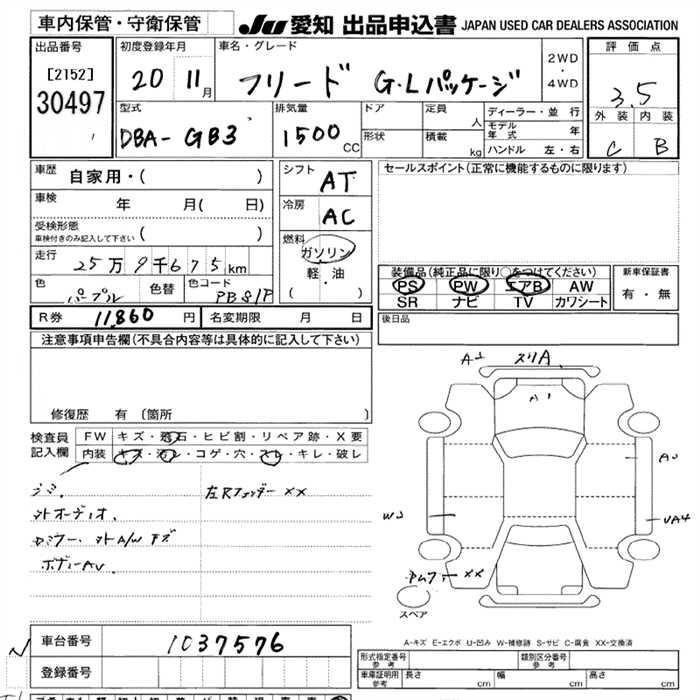 車内保管・守衛保管
JU 愛知 出品申込書 JAPAN USED CAR DEALERS ASSOCIATION
出品番号
[2152]
30497
初度登録年月
20 11月
車名・グレード
フリード G・Lパッケージ
2WD
・
4WD
評価点
3.5
外装 内装
C B
型式
DBA-GB3
排気量
1500 CC
ドア
形状
定員 人
積載 kg
ディーラー・並行
モデル年式 年
ハンドル 左・右
車歴 自家用・( )
車検 年 月( 日)
受検形態
車検付きのみ記入して下さい ( )
走行 25万9千675km
色 パープル 色替 色コード PB81P
シフト AT
冷房 AC
燃料
ガソリン
軽・油
( )
セールスポイント(正常に機能するものに限ります)
装備品(純正品に限り○をつけてください)
PS PW エアB AW
SR ナビ TV カワシート
新車保証書
有・無
R券 11,860円 名変期限 月 日
後日品
注意事項申告欄(不具合内容等は具体的に記入して下さい)
修復歴 有(箇所 )
検査員記入欄
FW キズ・飛石・ヒビ割・リペア跡・X要
内装 キズ・汚レ・コゲ・穴・スレ・キレ・破レ
左Rフェンダー XX
外オーディオ.
外A/W キズ
ボディーAU.
A2 スリA
A1
W2
UA4
XX
スペア
A-キズ E-エクボ U-凹み W-補修跡 S-サビ C-腐食 XX-交換済
車台番号 1037576
登録番号
形式指定番号 参考
類別区分番号 参考
車庫証明用 参考 長さ cm 幅 cm 高さ cm